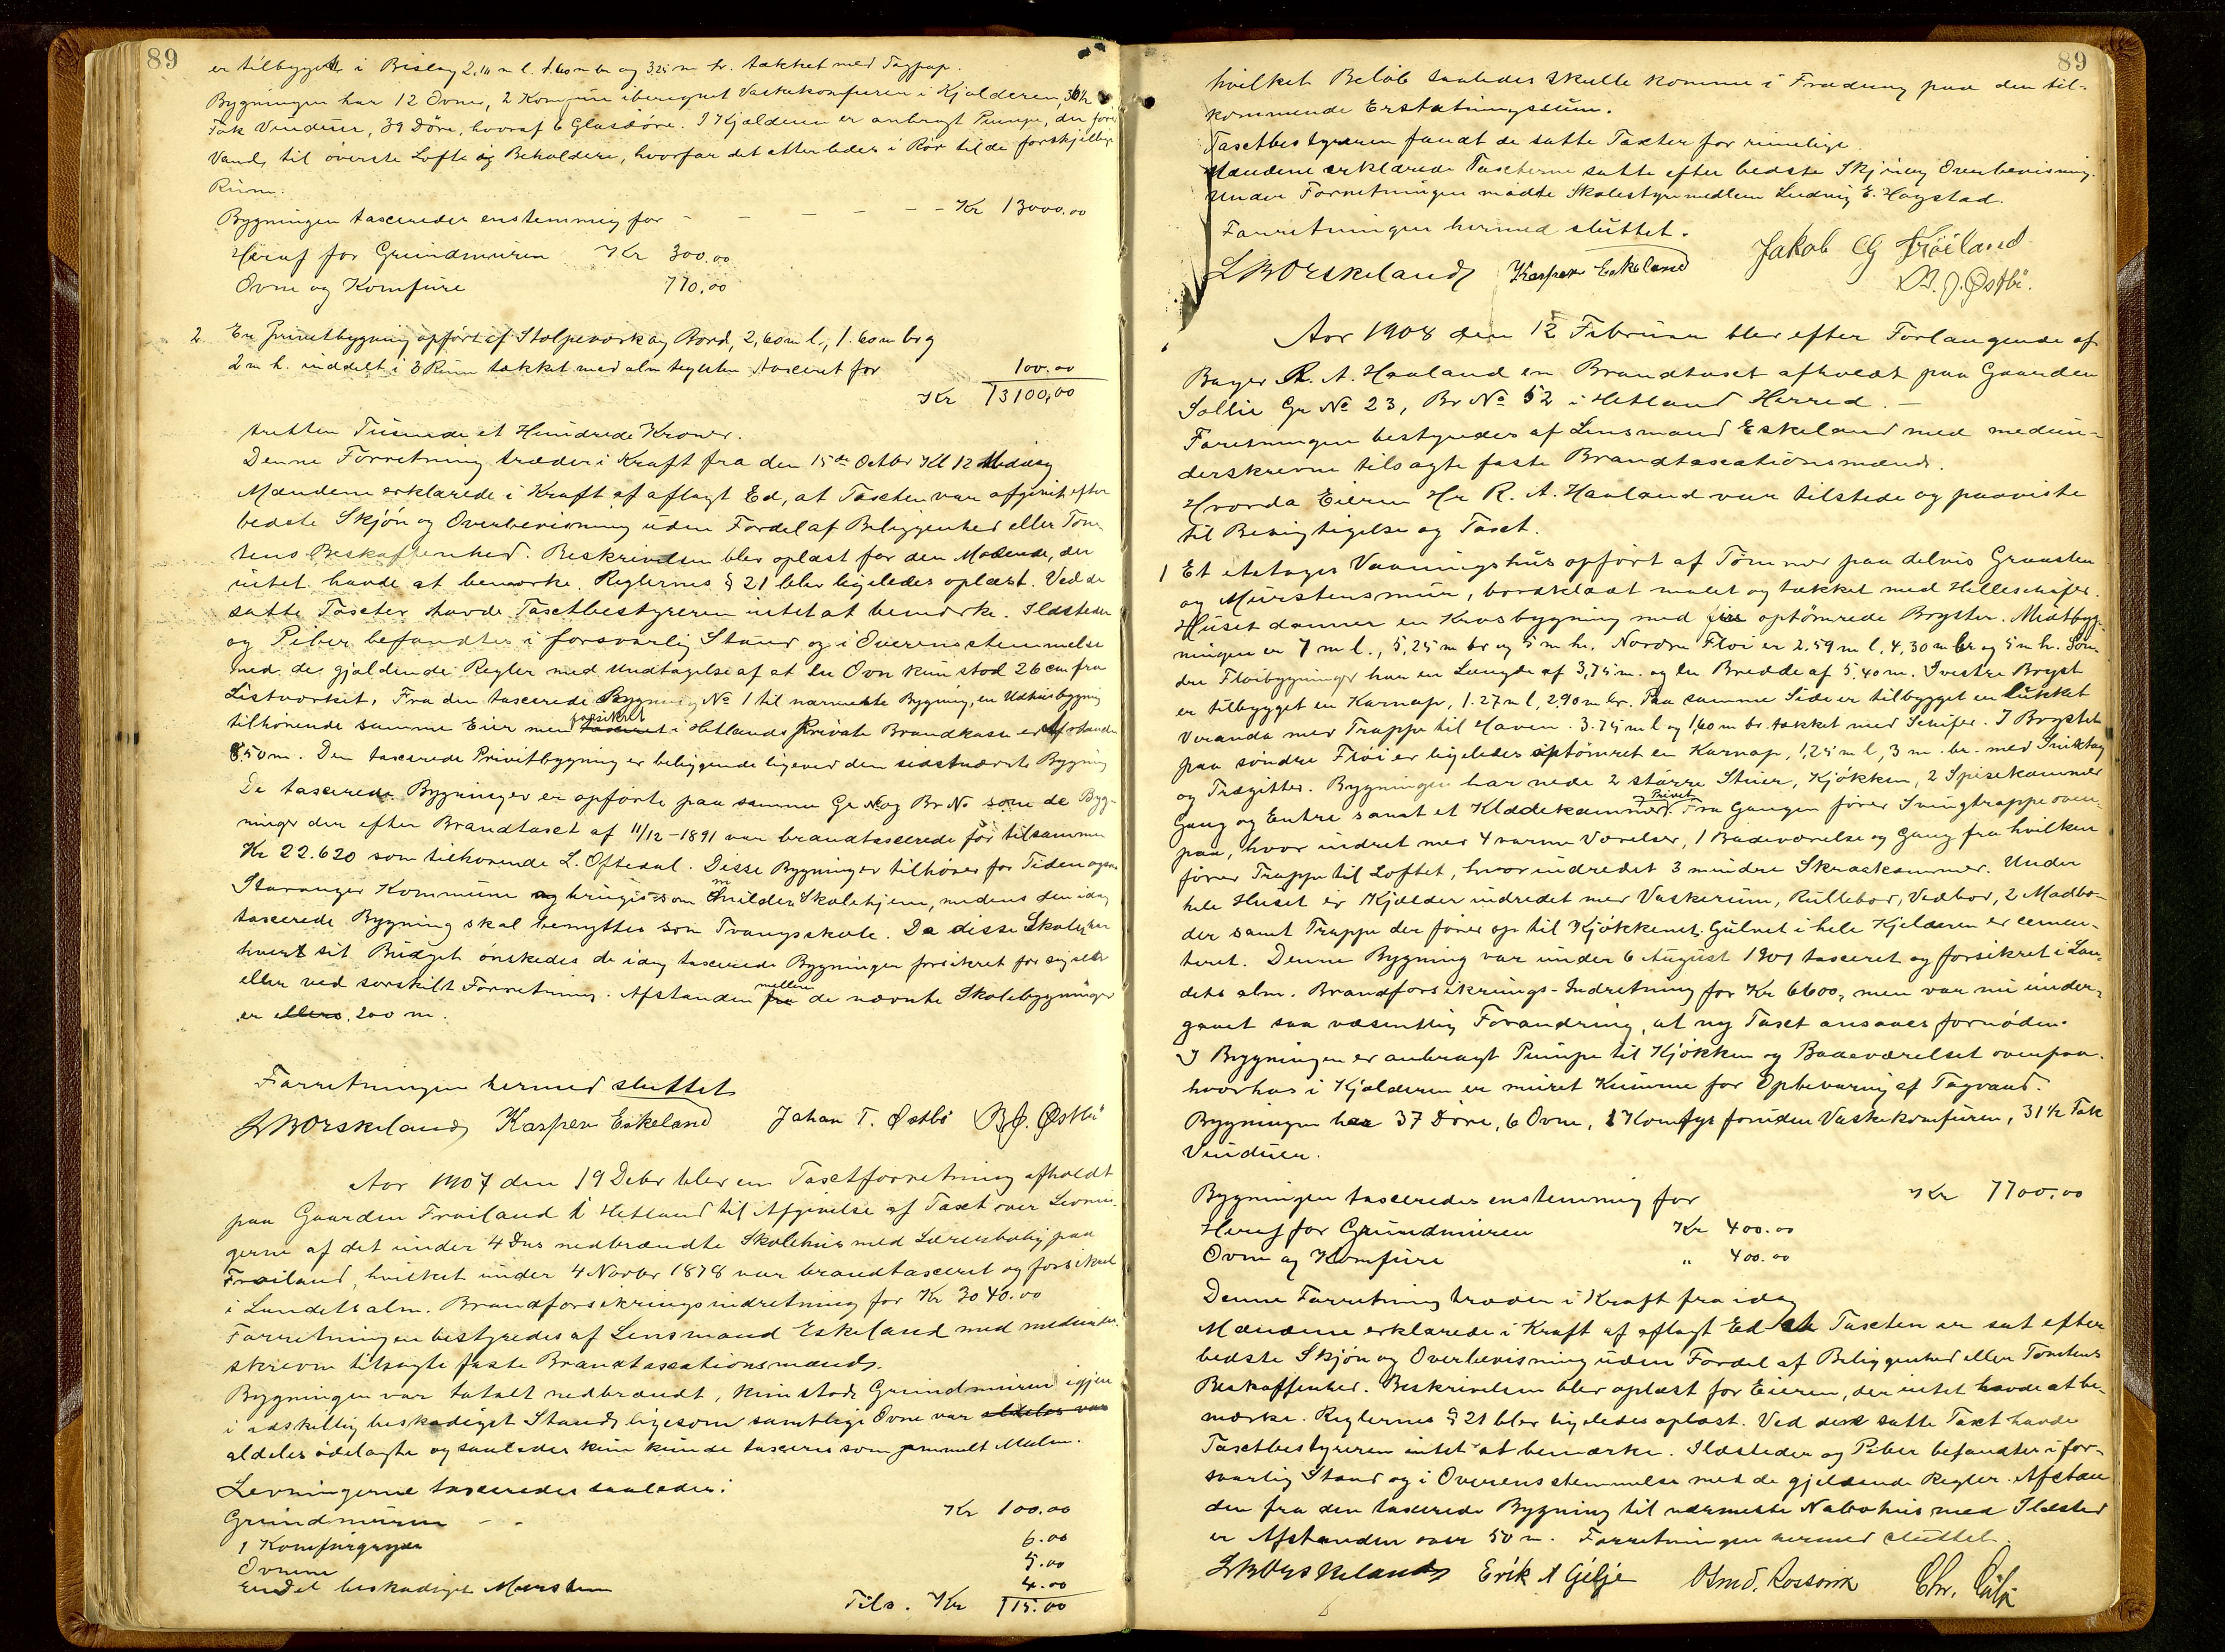 89
er tilbygget i Bislag 2.10 m l. 1.60 m br og 3.25 m h. tækket med Tagpap.
Bygningen har 12 Ovne, 2 Komfure iberegnet Vaskekomfuren i Kjælderen, 36½
Fak Vinduer, 39 Döre, hvoraf 6 Glasdöre. I Kjælderen er anbragt Pumpe, der förer
Vand til överste Loft og Beholdere, hvorfar det atter ledes i Rör til de forskjellige
Rum.
Bygningen taxeredes enstemmig for - - - - - Kr 13000.00
Heraf for Grundmuren Kr 300.00
Ovne og Komfure 770.00
2. En Privetbygning opfört af Stolpeværk og Bord, 2,60 m l., 1.60 m br og
2 m h. inddelt i 3 Rum tækket med alm tegelsten taxeret for 100.00
Kr 13100,00
tretten Tusinde et Hundrede Kroner.
Denne Forretning træder i Kraft fra den 15de Octbr Kl 12 Middag
Mændene erklærede i Kraft af aflagt Ed, at Taxten var afgivet efter
bedste Skjön og Overbevisning uden Fordel af Beliggenhed eller Tom
tens Beskaffenhed. Beskrivelsen blev oplæst for den Mödende, der
intet havde at bemærke. Reglernes § 21 blev ligeledes oplæst. Ved de
satte Taxter havde Taxtbestyreren intet at bemærke. Ildsteder
og Piber befandtes i forsvarlig Stand og i Overensstemmelse
med de gjældende Regler med Undtagelse af at en Ovn kun stod 26 cm fra
Listværket. Fra den taxerede Bygning No 1 til nærmeste Bygning, en Udhusbygning
tilhörende samme Eier men forsikret i Hetlands Private Brandkasse er Afstanden
8.50 m. Den taxerede Privetbygning er beliggende ligeved den sidstnævnte Bygning
De taxerede Bygninger er opförte paa samme Gr No og Br No som de Byg-
ninger der efter Brandtaxt af 11/12-1891 var brandtaxerede for tilsammen
Kr 22.620 som tilhörende L. Oftedal. Disse Bygninger tilhörer for Tiden ogsaa
Stavanger Kommune og bruges som Skolehjem, medens den idag
taxerede Bygning skal benyttes som Tvangsskole. Da disse Skoler har
hvert sit Budget önskedes de idag taxerede Bygninger forsikret for sig selv
eller ved særskilt Forretning. Afstanden mellem de nævnte Skolebygninger
er 200 m.
Forretningen hermed sluttet
L W Orskeland Kasper Eskeland Johan T. Østbö B. J. Østbö
Aar 1907 den 19 Debr blev en Taxtforretning afholdt
paa Gaarden Fröiland i Hetland til Afgivelse af Taxt over Levnin-
gerne af det under 4 Dns nedbrændte Skolehus med Lærerbolig paa
Fröiland, hvilket under 4 Novbr 1878 var brandtaxeret og forsikret
i Landets alm. Brandforsikringsindretning for Kr 3040.00
Forretningen bestyredes af Lensmand Eskeland med medunder
skrevne tilsagte faste Brandtaxationsmænd.
Bygningen var totalt nedbrændt, kun stod Grundmuren igjen
i adskillig beskadiget Stand ligesom samtlige Ovne var aldeles var
aldeles ödelagte og saaledes kun kunde taxeres som gammelt Malm.
Levningerne taxeredes saaledes:
Grundmuren - - Kr 100.00
1 Komfurgryde 6.00
Ovnene 5.00
En Del beskadiget Mursten 4.00
Tils. Kr 115.00
89
hvilket Belöb saaledes skulle komme i Fradrag paa den til-
kommende Erstatningssum.
Taxtbestyreren fandt de satte Taxter for rimelige.
Mændene erklærede Taxterne satte efter bedste Skjön og Overbevisning.
Under Forretningen mödte Skolestyremedlem Ludvig E. Hogstad.
Forretningen hermed sluttet.
L W Orskeland Kasper Eskeland Jakob Fröiland
B. J. Østbö.
Aar 1908 den 12 Februar blev efter Forlangende af
Bager R. A. Haaland en Brandtaxt afholdt paa Gaarden
Sollie Gr No 23, Br No 52 i Hetland Herred. -
Foretningen bestyredes af Lensmand Eskeland med medun-
derskrevne tilsagte faste Brandtaxationsmænd.
Hvorda Eieren Hr R. A. Haaland var tilstede og paaviste
til Besigtigelse og Taxt.
1 Et etages Vaaningshus opfört af Tömmer paa delvis Graasten
og Murstensmur, bordklædt malet og tækket med Helleskifer.
Huset danner en Krosbygning med optömrede Bryster. Midtbyg-
ningen er 7 m l., 5,25 m br og 5 m h. Nordre Flöi er 2.59 m l. 4,30 m br og 5 m h. Sön-
dre Flöibygninger har en Længde af 3,75 m. og en Bredde af 5.40 m. I vestre Bryst
er tilbygget en Karnap, 1.27 m l, 2,90 m br. Paa samme Side er tilbygget en lukket
Veranda med Trappe til Haven. 3.75 m l og 1,60 m br. tækket med Skifer. I Brystet
paa söndre Flöi er ligeledes optömret en Karnap, 1,25 m l, 3 m br. med
og Trægitter. Bygningen har nede 2 större Stuer, Kjökken, 2 Spisekammer
Gang og Entre samt et Klædekammer, Privet. Fra Gangen förer Svingtrappe oven-
paa, hvor indret med 4 varme Værelser, 1 Badeværelse og Gang fra hvilken
förer Trappe til Loftet, hvor indredet 3 mindre Skraakammer. Under
hele Huset er Kjælder indredet med Vaskerum, Rullebod, Vedbod, 2 Madbo-
der samt Trappe der förer op til Kjökkenet. Gulvet i hele Kjelderen er cemen-
teret. Denne Bygning var under 6 August 1901 taxeret og forsikret i Lan-
dets alm. Brandforsikrings-Indretning for Kr 6600, men var nu under-
gaaet saa væsentlig Forandring, at ny Taxt ansaaes fornöden.
I Bygningen er anbragt Pumpe til Kjökken og Badeværelset ovenpaa.
hvorhos i Kjælderen er muret Kumme for Opbevaring af Tagvand.
Bygningen har 37 Döre, 6 Ovne, 1 Komfyr foruden Vaskekomfuren, 31½ Fak
Vinduer.
Bygningen taxeredes enstemmig for Kr 7700.00
Heraf for Grundmuren Kr 400.00
Ovne og Komfure " 400.00
Denne Forretning træder i Kraft fra idag
Mændene erklærede i Kraft af aflagt Ed at Taxten er sat efter
bedste Skjön og Overbevisning uden Fordel af Beliggenhed eller Tomtens
Beskaffenhed. Beskrivelsen blev oplæst for Eieren, der intet havde at be-
mærke. Reglernes § 21 blev ligeledes oplæst. Ved den satte Taxt havde
Taxtbestyreren intet at bemærke. Ildsteder og Piber befandtes i for-
svarlig Stand og i Overensstemmelse med de gjeldende Regler. Afstan
den fra den taxerede Bygning til nærmeste Nabohus med Ildsted
er Afstanden over 50 m. Forretningen hermed sluttet
L W Orskeland Erik A Gilje Osmd. Rossavik Chr. Gilje